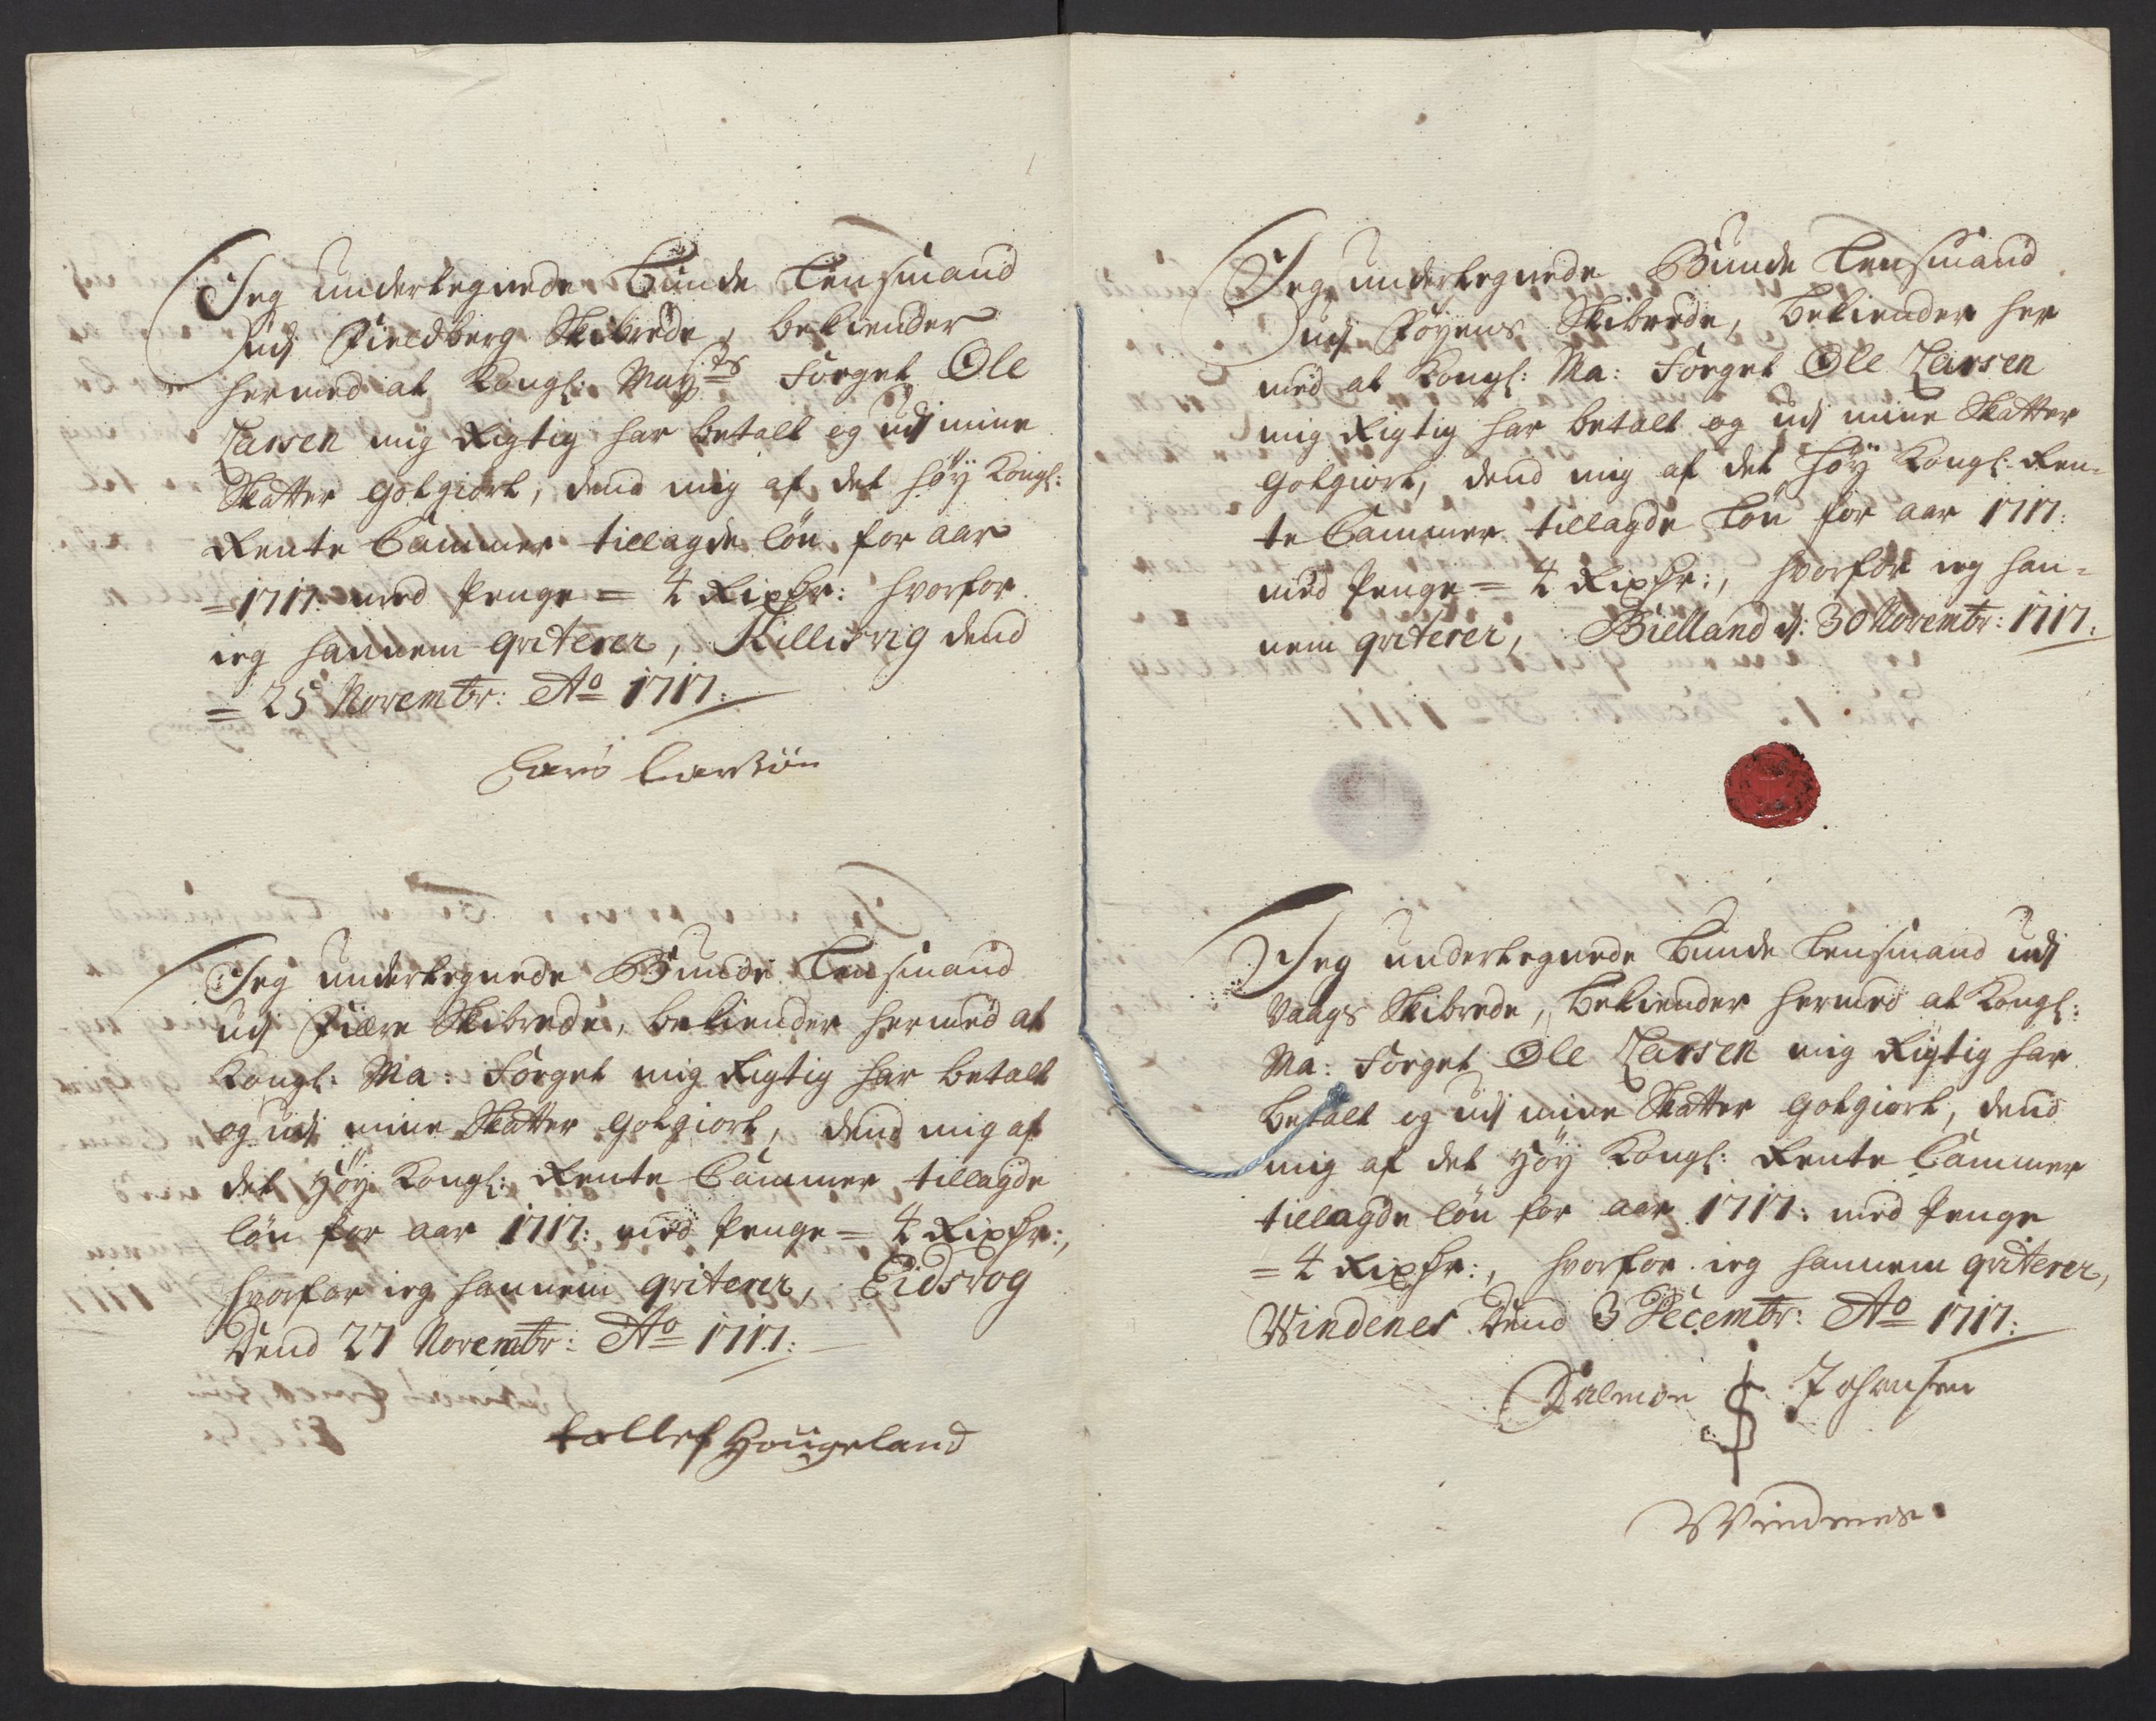 Jeg undertegnede Bunde Lensmand
udj Fieldberg Skibrede, bekiender
hermed at Kongl: May:ts Foeget Ole
Larsen mig Rigtig har betalt og udj mine
Skatter Gotgiort, dend mig af det höy Kongl:
Rente Cammer tillagde lön for aar
=1717: med Penge = 4 Rixdr: hvorfor
ieg hannem qviterer, Killisvig dend
= 25 Novembr: Ao 1717:
Lars Larsön
Jeg undertegnede Bunde Lensmand
udj Fiære Skibrede, bekiender hermed at
Kongl: Ma: Foeget mig Rigtig har betalt
og udj mine Skatter Gotgiort, dend mig af
det Höy Kongl: Rente Cammer tillagde
lön for aar 1717: med Penge = 4 Rixdr:,
hvorfor ieg hannem qviterer, Eidsvog
Dend 27 Novembr: Ao 1717:
tollef Hougeland
Jeg undertegnede Bunde Lensmand
udj Föyens Skibrede, bekiender her
med at Kongl: Ma: Foeget Ole Larsen
mig Rigtig har betalt og udj mine Skatter
Gotgiort, dend mig af det höy Kongl: Ren-
te Cammer tillagde Lön for aar 1717:
med Penge = 4 Rixdr:, hvorfor ieg han-
nem qviterer, Bielland d: 30 Novembr: 1717:
Jeg undertegnede Bunde Lensmand udj
Vaags Skibrede, bekiender hermed at Kongl:
Ma: Foeget Ole Larsen mig Rigtig har
betalt og udj mine Skatter Gotgiort, dend
mig af det Höy Kongl: Rente Cammer
tillagde lön for aar 1717: med Penge
= 4 Rixdr:, hvorfor ieg hannem qviterer,
Windenes Dend 3 Decembr: Ao 1717:
Salmon Johansen
Windenes